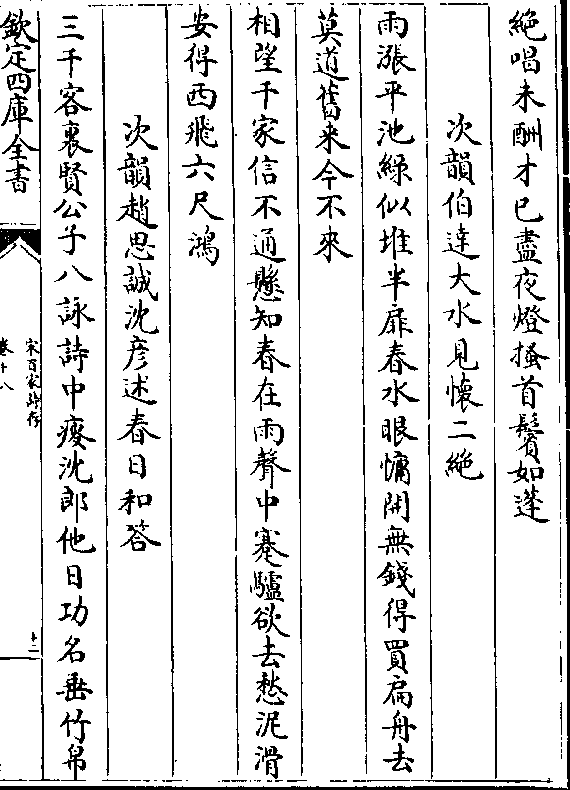 絶唱未酬才已盡夜燈搔首鬢如蓬
次韻伯達大水見懷二絶
雨漲平池綠似堆半扉春水眼慵開無錢得買扁舟去
莫道舊來今不來
相望千家信不通懸知春在雨聲中蹇驢欲去愁泥滑
安得西飛六尺鴻
次韻趙思誠沈彦述春日和答
三千客裏賢公子八詠詩中瘦沈郎他日功名垂竹帛
欽定四庫全書
宋百家詩存
卷十八
十二